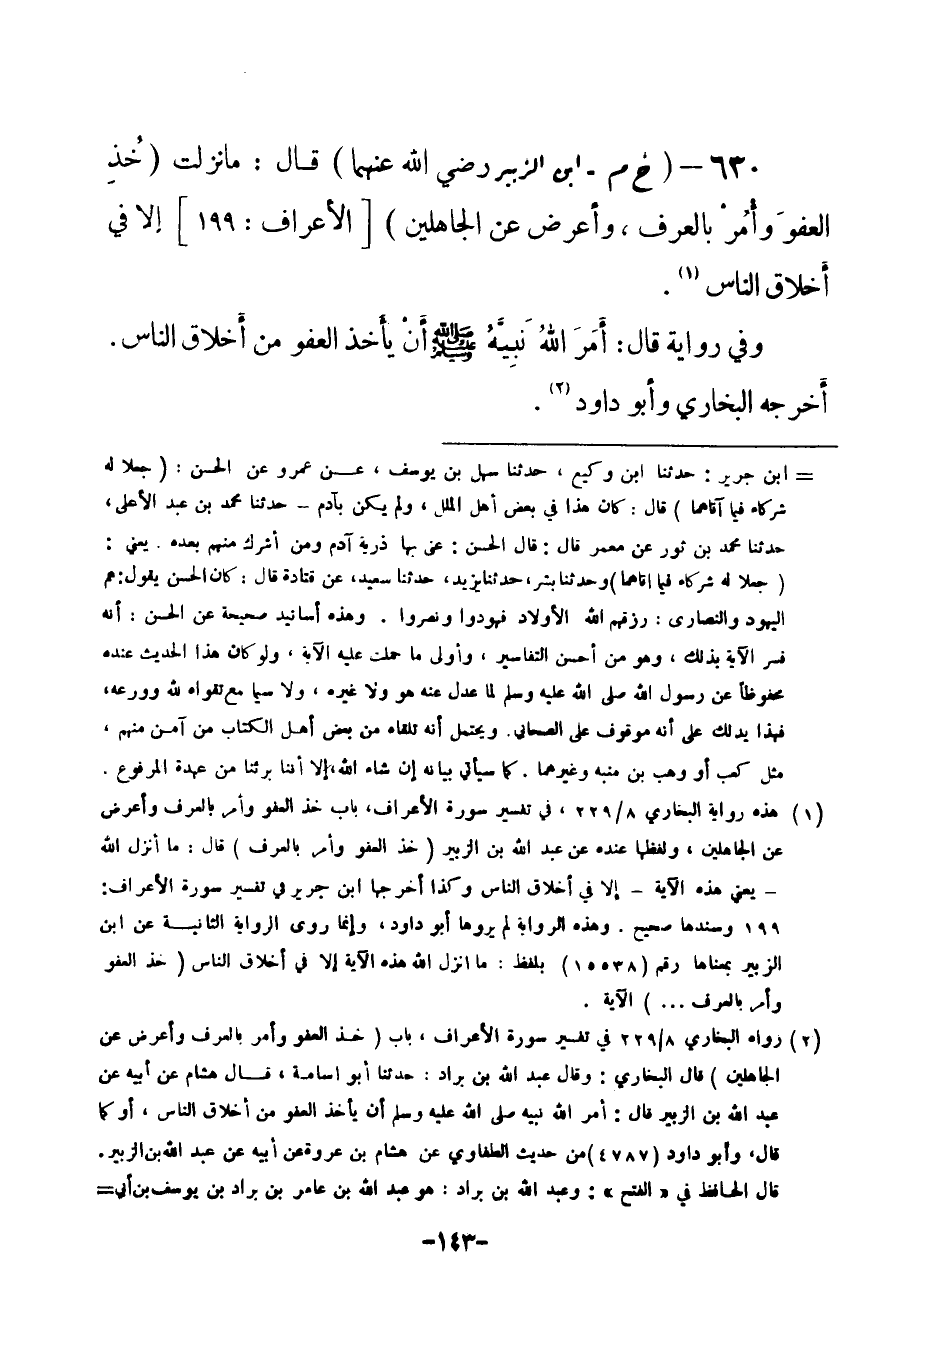 ٦٣٠ – ( خ م - ابن الزبير رضي الله عنهما ) قال : مانزلت ( خُذِ
العفوَ وأْمُرْ بالعرف ، وأعرض عن الجاهلين ) [ الأعراف : ١٩٩ ] إلا في
أخلاق الناس (١) .
وفي رواية قال: أَمَرَ اللهُ نَبِيَّهُ ﷺ أَنْ يأخذ العفو من أخلاق الناس .
أخرجه البخاري وأبو داود (٢) .
= ابن جرير : حدثنا ابن وكيع ، حدثنا سهل بن يوسف ، عن عمرو عن الحسن : ( جعلا له
شركاء فيما آتاهما ) قال : كان هذا في بعض أهل الملل ، ولم يكن بآدم – حدثنا محمد بن عبد الأعلى ،
حدثنا محمد بن ثور عن معمر قال : قال الحسن : عنى بها ذرية آدم ومن أشرك منهم بعده . يعني :
( جعلا له شركاء فيما اتاهما )وحدثنا بشر، حدثنايزيد، حدثنا سعيد، عن قتادة قال : كان الحسن يقول: هم
اليهود والنصارى : رزقهم الله الأولاد فهودوا ونصروا . وهذه أسانيد صحيحة عن الحسن : أنه
فسر الآية بذلك ، وهو من أحسن التفاسير ، وأولى ما حملت عليه الآية ، ولو كان هذا الحديث عنده
محفوظاً عن رسول الله صلى الله عليه وسلم لما عدل عنه هو ولا غيره ، ولا سيما مع تقواه لله وورعه،
فهذا يدلك على أنه موقوف على الصحابي. ويحتمل أنه تلقاه من بعض أهل الكتاب من آمن منهم ،
مثل كعب أو وهب بن منبه وغيرهما . كما سيأتي بيانه إن شاء الله،إلا أننا برئنا من عهدة المرفوع .
(١) هذه رواية البخاري ٢٢٩/٨ ، في تفسير سورة الأعراف، باب خذ العفو وأمر بالعرف وأعرض
عن الجاهلين ، ولفظها عنده عن عبد الله بن الزبير ( خذ العفو وأمر بالعرف ) قال : ما أنزل الله
– يعني هذه الآية – إلا في أخلاق الناس وكذا أخرجها ابن جرير في تفسير سورة الأعراف:
١٩٩ وسندها صحيح . وهذه الرواية لم يروها أبو داود ، وإنما روى الرواية الثانية عن ابن
الزبير بمعناها رقم (١٥٥٣٨) بلفظ : ما انزل الله هذه الآية إلا في أخلاق الناس ( خذ العفو
وأمر بالعرف ... ) الآية .
(٢) رواه البخاري ٢٢٩/٨ في تفسير سورة الأعراف ، باب ( خذ العفو وأمر بالعرف وأعرض عن
الجاهلين ) قال البخاري : وقال عبد الله بن براد : حدثنا أبو اسامة ، قال هشام عن أبيه عن
عبد الله بن الزبير قال : أمر الله نبيه صلى الله عليه وسلم أن يأخذ العفو من أخلاق الناس ، أو كما
قال، وأبو داود (٤٧٨٧)من حديث الطفاوي عن هشام بن عروة عن أبيه عن عبد الله بن الزبير .
قال الحافظ في « الفتح » : وعبد الله بن براد : هو عبد الله بن عامر بن براد بن يوسف بن أبي =
-١٤٣-